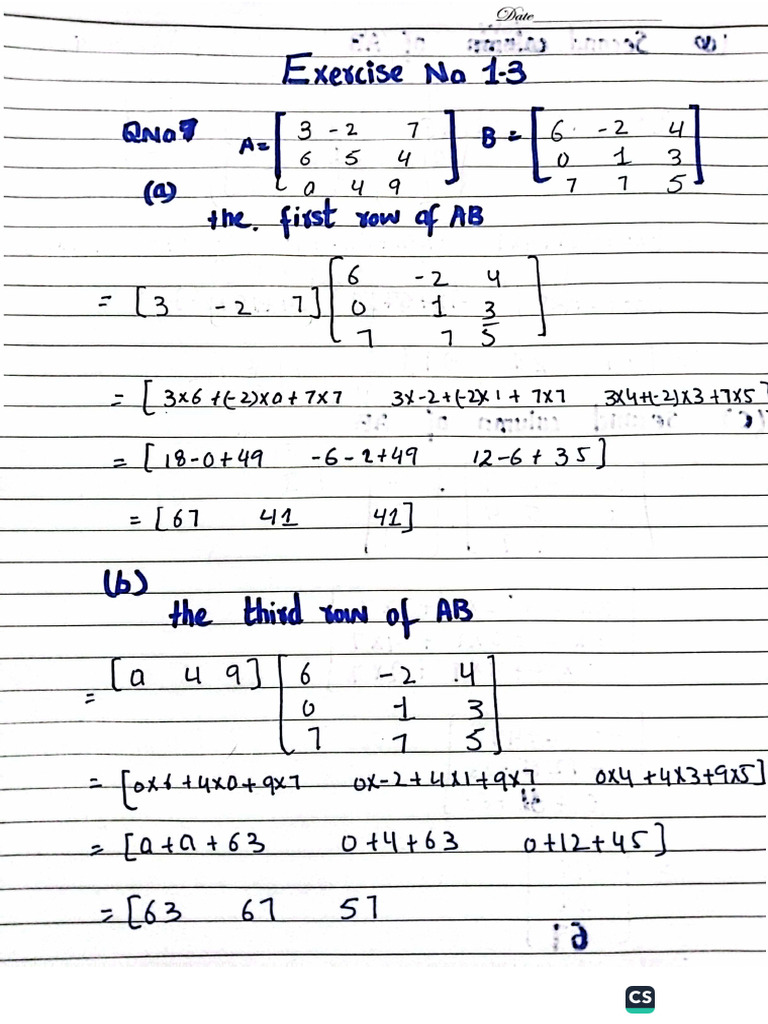 Date
Exercise No 1.3
QNo 7 A= [ 3 -2 7 B = [ 6 -2 4
6 5 4 ] 0 1 3 ]
(a) 0 4 9 7 7 5
the. first row of AB
= [3 -2 7] [ 6 -2 4
0 1 3
7 7 5 ]
= [ 3x6 +(-2)x0 + 7x7 3x-2+(-2)x1 + 7x7 3x4+(-2)x3+7x5]
= [ 18-0+49 -6-2+49 12-6+35 ]
= [67 41 41]
(b)
the third row of AB
= [0 4 9] [ 6 -2 4
0 1 3
7 7 5 ]
= [0x6 +4x0+9x7 0x-2+4x1+9x7 0x4 +4x3+9x5]
= [0+0+63 0+4+63 0+12+45]
= [63 67 57
CS